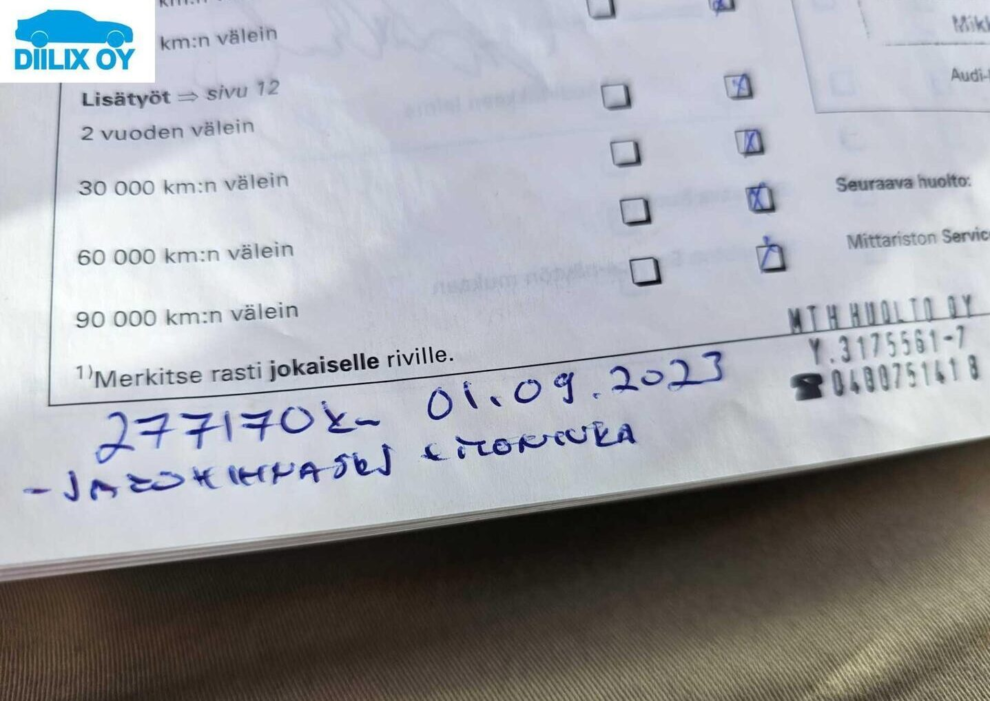 DIILIX OY
km:n välein
Lisätyöt ⇒ sivu 12
2 vuoden välein
30 000 km:n välein
60 000 km:n välein
90 000 km:n välein
1)Merkitse rasti jokaiselle riville.
Audi-
Seuraava huolto:
Mittariston Servic
MTH HUOLTO OY
Y.3175561-7
☎0480751418
277170 01.09.2023